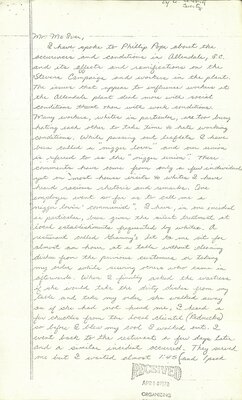 Mr. McIver,
I have spoke to Phillip Pope about the
occurences and conditions in Allendale, S.C.
and its affects and ramifications on the
Stevens Campaign and workers in the plant.
The issues that appear to influence workers at
the Allendale plant deal more with social
conditions than then with work conditions.
Many workers, whites in particular, are too busy
hating each other to take time to hate working
conditions. While passing out leaflets, I have
been called a "nigger lover" and our union
is referred to as the "nigger union". These
comments have come from only a few individuals
yet in most house visits to whites I have
heard racious rhetoric and remarks. One
employee went so far as to call me a
"nigger lovin' communist". I have, on one incident
in particular, been given the silent treatment at
local establishments frequented by whites. A
resturant called let me sit for
almost an hour, at a table without clearing
dishes from the previous customer or taking
my order while serving others who came in
afterwards. When I finally asked the waitress
if she would take the dirty dishes from my
table and take my order she walked away
as if she had not heard me. I heard a
few chuckles from the local clients (Rednecks)
so before I blew my cool I walked out. I
went back to the resturant a few days later
and a similar incident occurred. They served
me but I waited almost 1:45 (and
RECEIVED
ORGANIZING